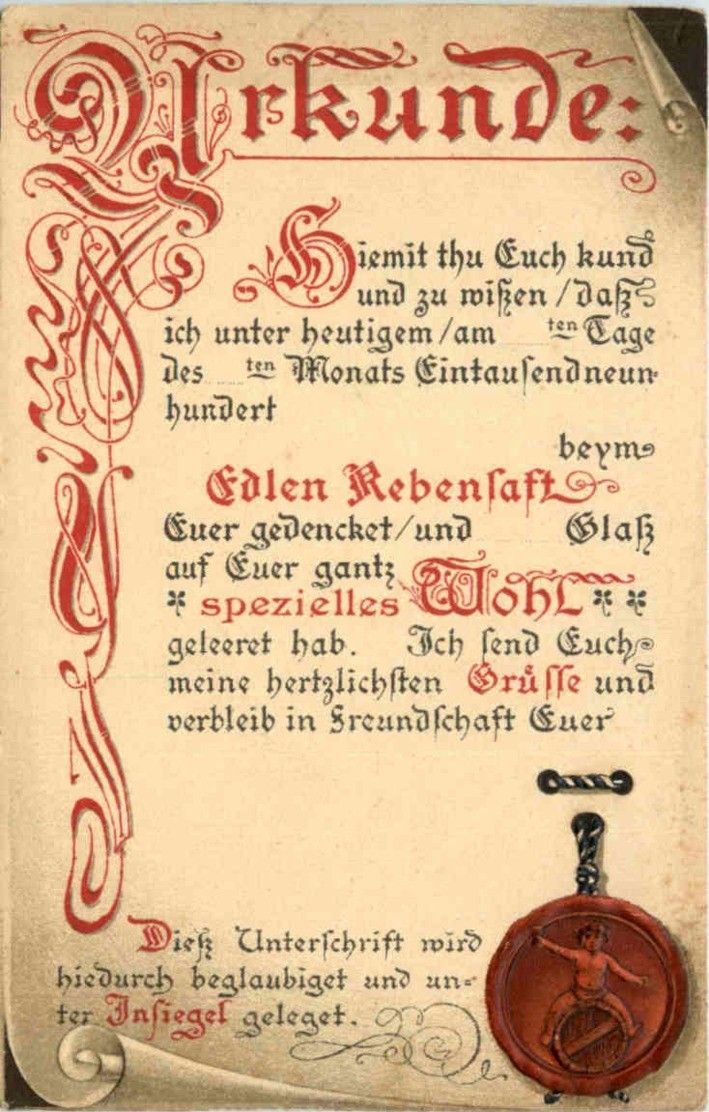 Urkunde:
Hiemit thu Euch kund
und zu wißen / daß
ich unter heutigem / am ten Tage
des ten Monats Eintausendneun-
hundert
beym
Edlen Rebensaft
Euer gedencket / und Glaß
auf Euer gantz
spezielles Wohl
geleeret hab. Ich send Euch
meine hertzlichsten Grüsse und
verbleib in Freundschaft Euer
Dieß Unterschrift wird
hiedurch beglaubiget und un-
ter Insiegel geleget.